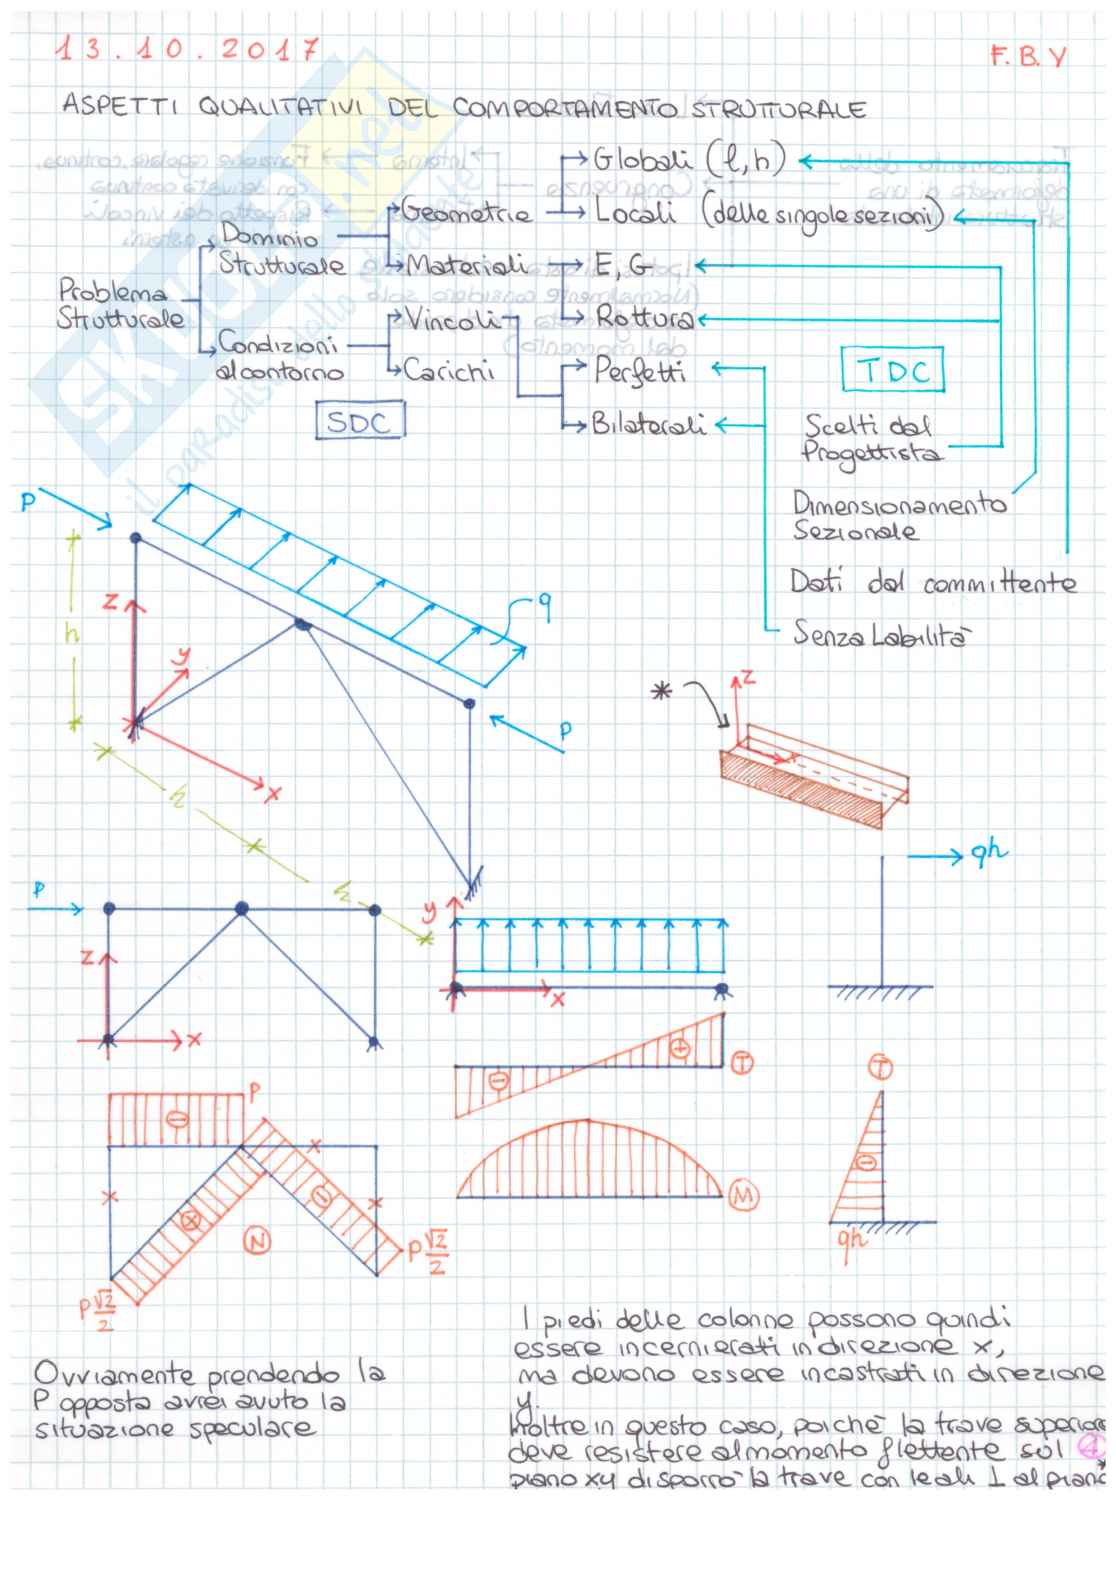 13.10.2017
F.B.Y
ASPETTI QUALITATIVI DEL COMPORTAMENTO STRUTTURALE
Problema
Strutturale
Dominio
Strutturale
Condizioni
al contorno
SDC
Geometrie
Materiali
Vincoli
Carichi
Globali (l,h)
Locali (delle singole sezioni)
E, G
Rottura
Perfetti
Bilaterali
TDC
Scelti dal
Progettista
Dimensionamento
Sezionale
Dati dal committente
Senza Labilità
P
q
h
z
y
x
P
h
h
*
z
x
P
z
x
y
x
qh
P
N
P√2/2
P√2/2
T
M
T
qh
Ovviamente prendendo la
P opposta avrei avuto la
situazione speculare
I piedi delle colonne possono quindi
essere incernierati in direzione x,
ma devono essere incastrati in direzione
y.
Inoltre in questo caso, poiché la trave superiore
deve resistere al momento flettente sul
piano xy disporrò la trave con le ali ⊥ al piano
SKUOLA.net
il paradiso dello studente